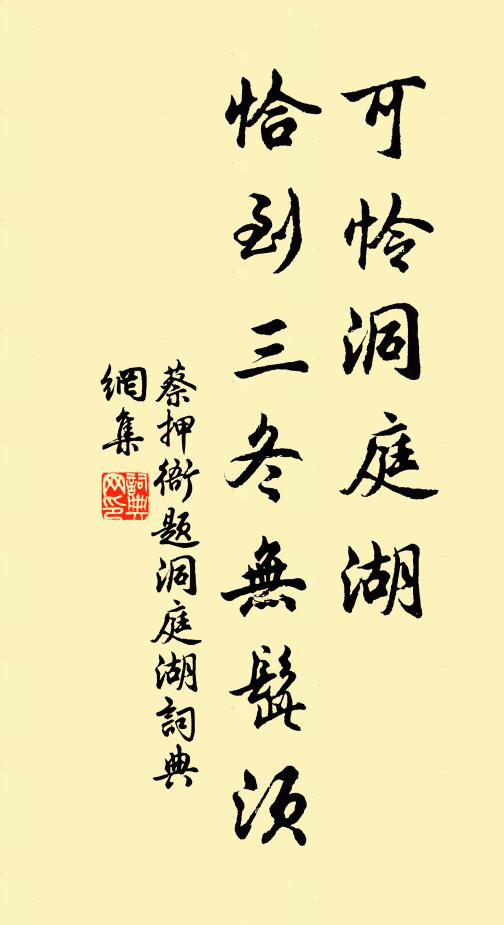 可怜洞庭湖
恰到三冬無髭須
蔡押衙题洞庭湖詞典
網集
詞典
网印